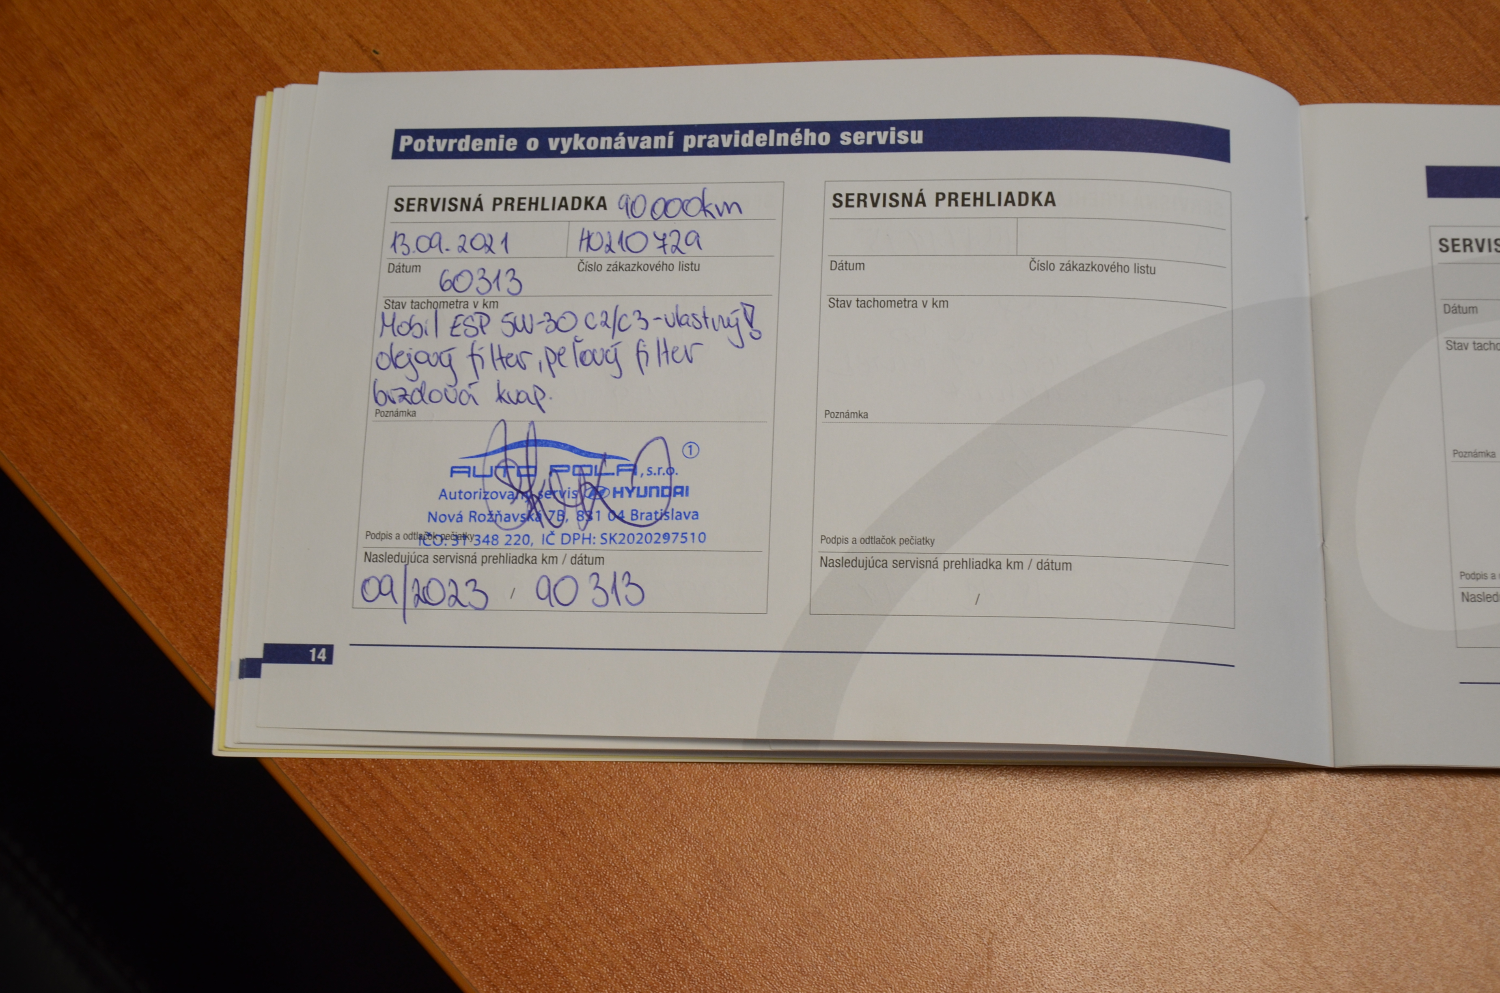 Potvrdenie o vykonávaní pravidelného servisu
SERVISNÁ PREHLIADKA 90 000km
13.09.2021 H0210729
Dátum Číslo zákazkového listu
60313
Stav tachometra v km
Mobil ESP 5W-30 C2/C3-vlastný!
olejový filter, peľový filter
brzdová kvap.
Poznámka
AUTO POLA, s.r.o. 1
Autorizovaný servis HYUNDAI
Nová Rožňavská 7B, 831 04 Bratislava
Podpis a odtlačok pečiatky
IČO: 31 348 220, IČ DPH: SK2020297510
Nasledujúca servisná prehliadka km / dátum
09/2023 / 90 313
14
SERVISNÁ PREHLIADKA
Dátum Číslo zákazkového listu
Stav tachometra v km
Poznámka
Podpis a odtlačok pečiatky
Nasledujúca servisná prehliadka km / dátum
/
SERVIS
Dátum
Stav tacho
Poznámka
Podpis a
Nasled